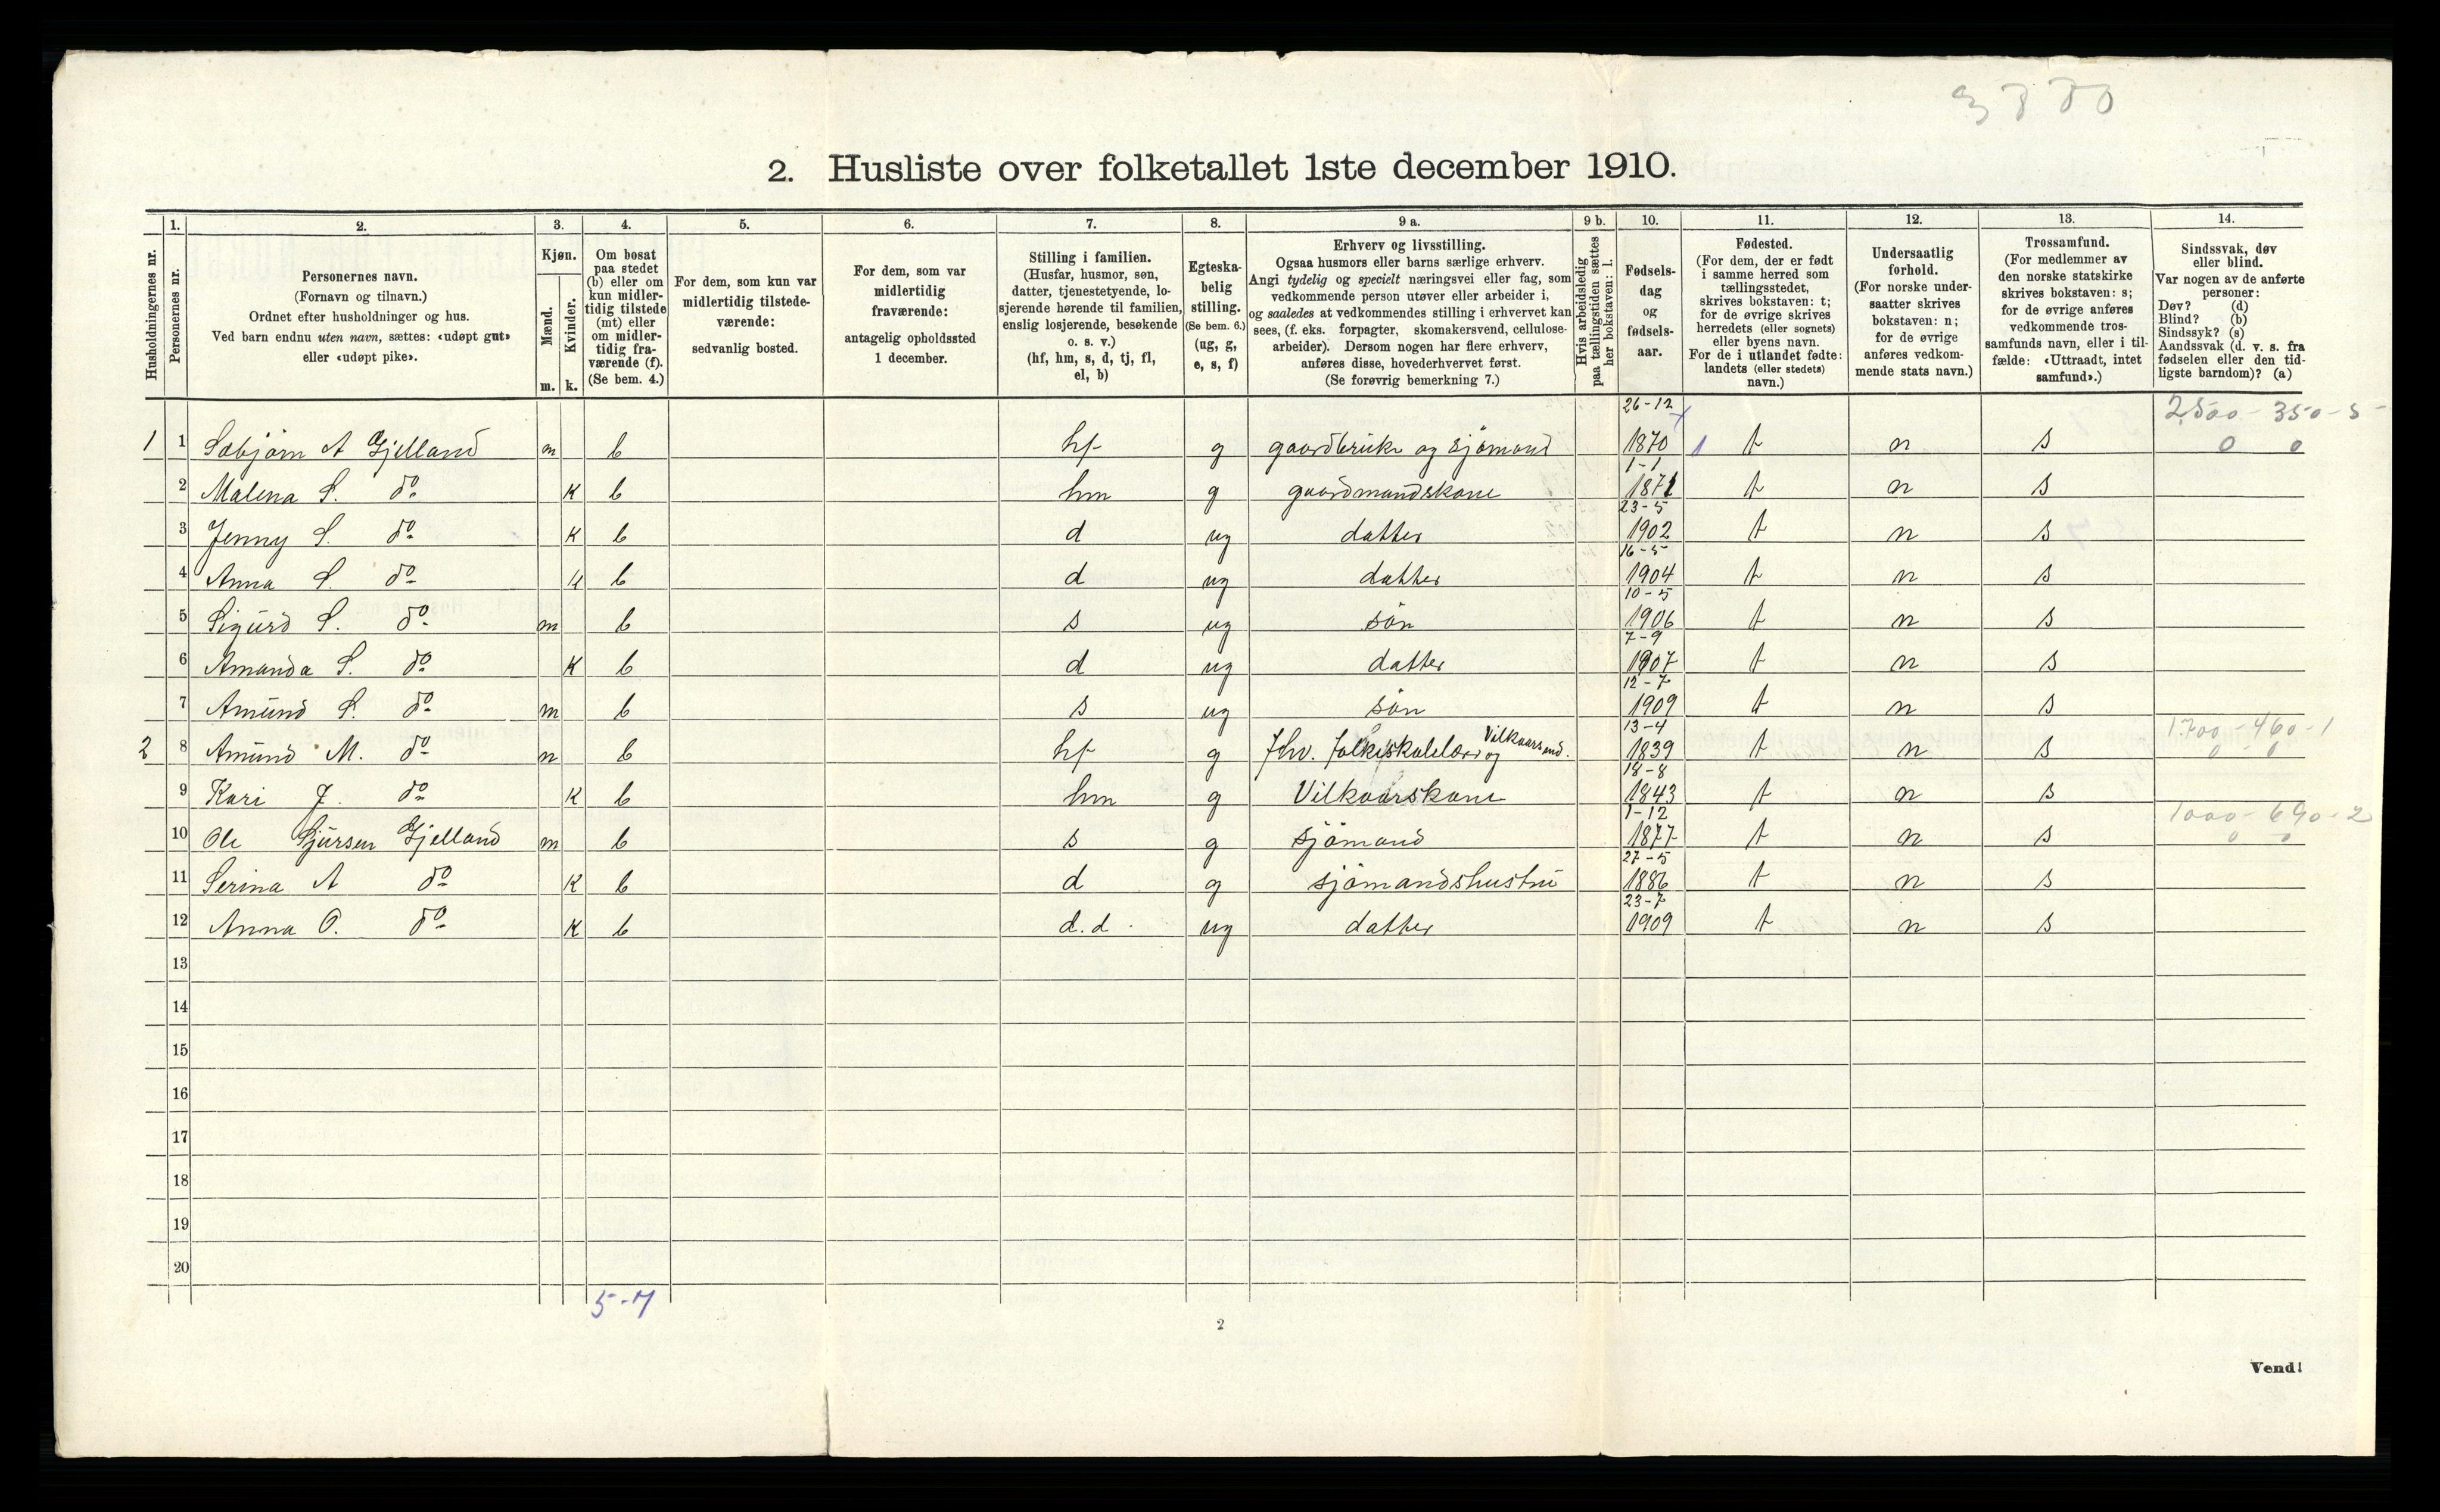 3880
2. Husliste over folketallet 1ste december 1910.
Husholdningernes nr.
1.
Personernes nr.
2.
Personernes navn.
(Fornavn og tilnavn.)
Ordnet efter husholdninger og hus.
Ved barn endnu uten navn, sættes: «udøpt gut»
eller «udøpt pike».
3.
Kjøn.
Mænd.
Kvinder.
m. k.
4.
Om bosat
paa stedet
(b) eller om
kun midler-
tidig tilstede
(mt) eller
om midler-
tidig fra-
værende (f).
(Se bem. 4.)
5.
For dem, som kun var
midlertidig tilstede-
værende:
sedvanlig bosted.
6.
For dem, som var
midlertidig
fraværende:
antagelig opholdssted
1 december.
7.
Stilling i familien.
(Husfar, husmor, søn,
datter, tjenestetyende, lo-
sjerende hørende til familien,
enslig losjerende, besøkende
o. s. v.)
(hf, hm, s, d, tj, fl,
el, b)
8.
Egteska-
belig
stilling.
(Se bem. 6.)
(ug, g,
e, s, f)
9 a.
Erhverv og livsstilling.
Ogsaa husmors eller barns særlige erhverv.
Angi tydelig og specielt næringsvei eller fag, som
vedkommende person utøver eller arbeider i,
og saaledes at vedkommendes stilling i erhvervet kan
sees, (f. eks. forpagter, skomakersvend, cellulose-
arbeider). Dersom nogen har flere erhverv,
anføres disse, hovederhvervet først.
(Se forøvrig bemerkning 7.)
9 b.
Hvis arbeidsledig
paa tællingstiden sættes
her bokstaven: l.
10.
Fødsels-
dag
og
fødsels-
aar.
11.
Fødested.
(For dem, der er født
i samme herred som
tællingsstedet,
skrives bokstaven: t;
for de øvrige skrives
herredets (eller sognets)
eller byens navn.
For de i utlandet fødte:
landets (eller stedets)
navn.)
12.
Undersaatlig
forhold.
(For norske under-
saatter skrives
bokstaven: n;
for de øvrige
anføres vedkom-
mende stats navn.)
13.
Trossamfund.
(For medlemmer av
den norske statskirke
skrives bokstaven: s;
for de øvrige anføres
vedkommende tros-
samfunds navn, eller i til-
fælde: «Uttraadt, intet
samfund».)
14.
Sindssvak, døv
eller blind.
Var nogen av de anførte
personer:
Døv? (d)
Blind? (b)
Sindssyk? (s)
Aandssvak (d. v. s. fra
fødselen eller den tid-
ligste barndom)? (a)
1 1 Sæbjörn A Gjelland m b hf g gaardbruker og sjömand 26-12 1870 t n s 2500-350-5 0 0
2 Malena S. do k b hm g gaardmandskone 1-1 1871 t n s
3 Jenny S. do k b d ug datter 23-5 1902 t n s
4 Anna S. do k b d ug datter 16-5 1904 t n s
5 Sigurd S. do m b s ug sön 10-5 1906 t n s
6 Amanda S. do k b d ug datter 7-9 1907 t n s
7 Amund S. do m b s ug sön 12-7 1909 t n s
2 8 Amund M. do m b hf g Fhv. Folkeskolelærer og Vilkaarsmd. 13-4 1839 t n s 1700-460-1 0-0
9 Kari J. do k b hm g Vilkaarskone 18-8 1843 t n s
10 Ole Sjursen Gjelland m b s g sjömand 1-12 1877 t n s 1000-690-2 0 0
11 Serina A do k b d g sjömandshustru 27-5 1886 t n s
12 Anna O. do k b d.d. ug datter 23-7 1909 t n s
13
14
15
16
17
18
19
20
5-7
2
Vend!